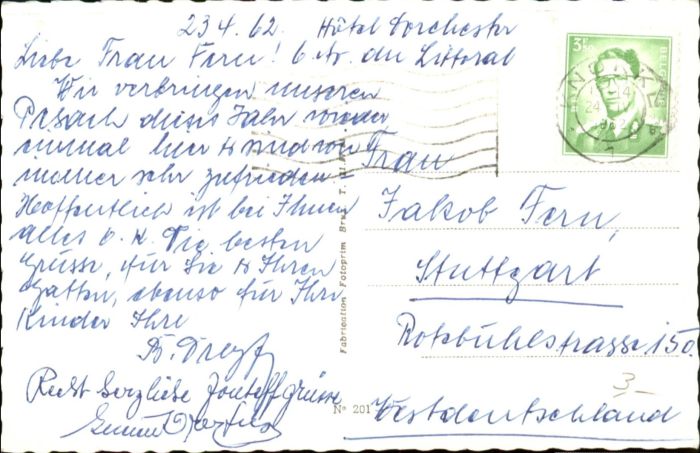 23.4.62. Hôtel Dorchester
Liebe Frau Fern! 6 Av. du Littoral
Wir verbringen unseren
Pesach dieses Jahr wieder
einmal hier & sind wie
immer sehr zufrieden -
Hoffentlich ist bei Ihnen
alles o. K. Die besten
Grüsse, für Sie & Ihren
Gatten, ebenso für Ihre
Kinder Ihre
Recht herzliche Jonteffgrüsse
Frau
Jakob Fern,
Stuttgart
Rotebühlstrasse 150.
Westdeutschland
3-
Fabrication Fotoprim Brux. T.
Nº 201
3F
BELGIQUE
24